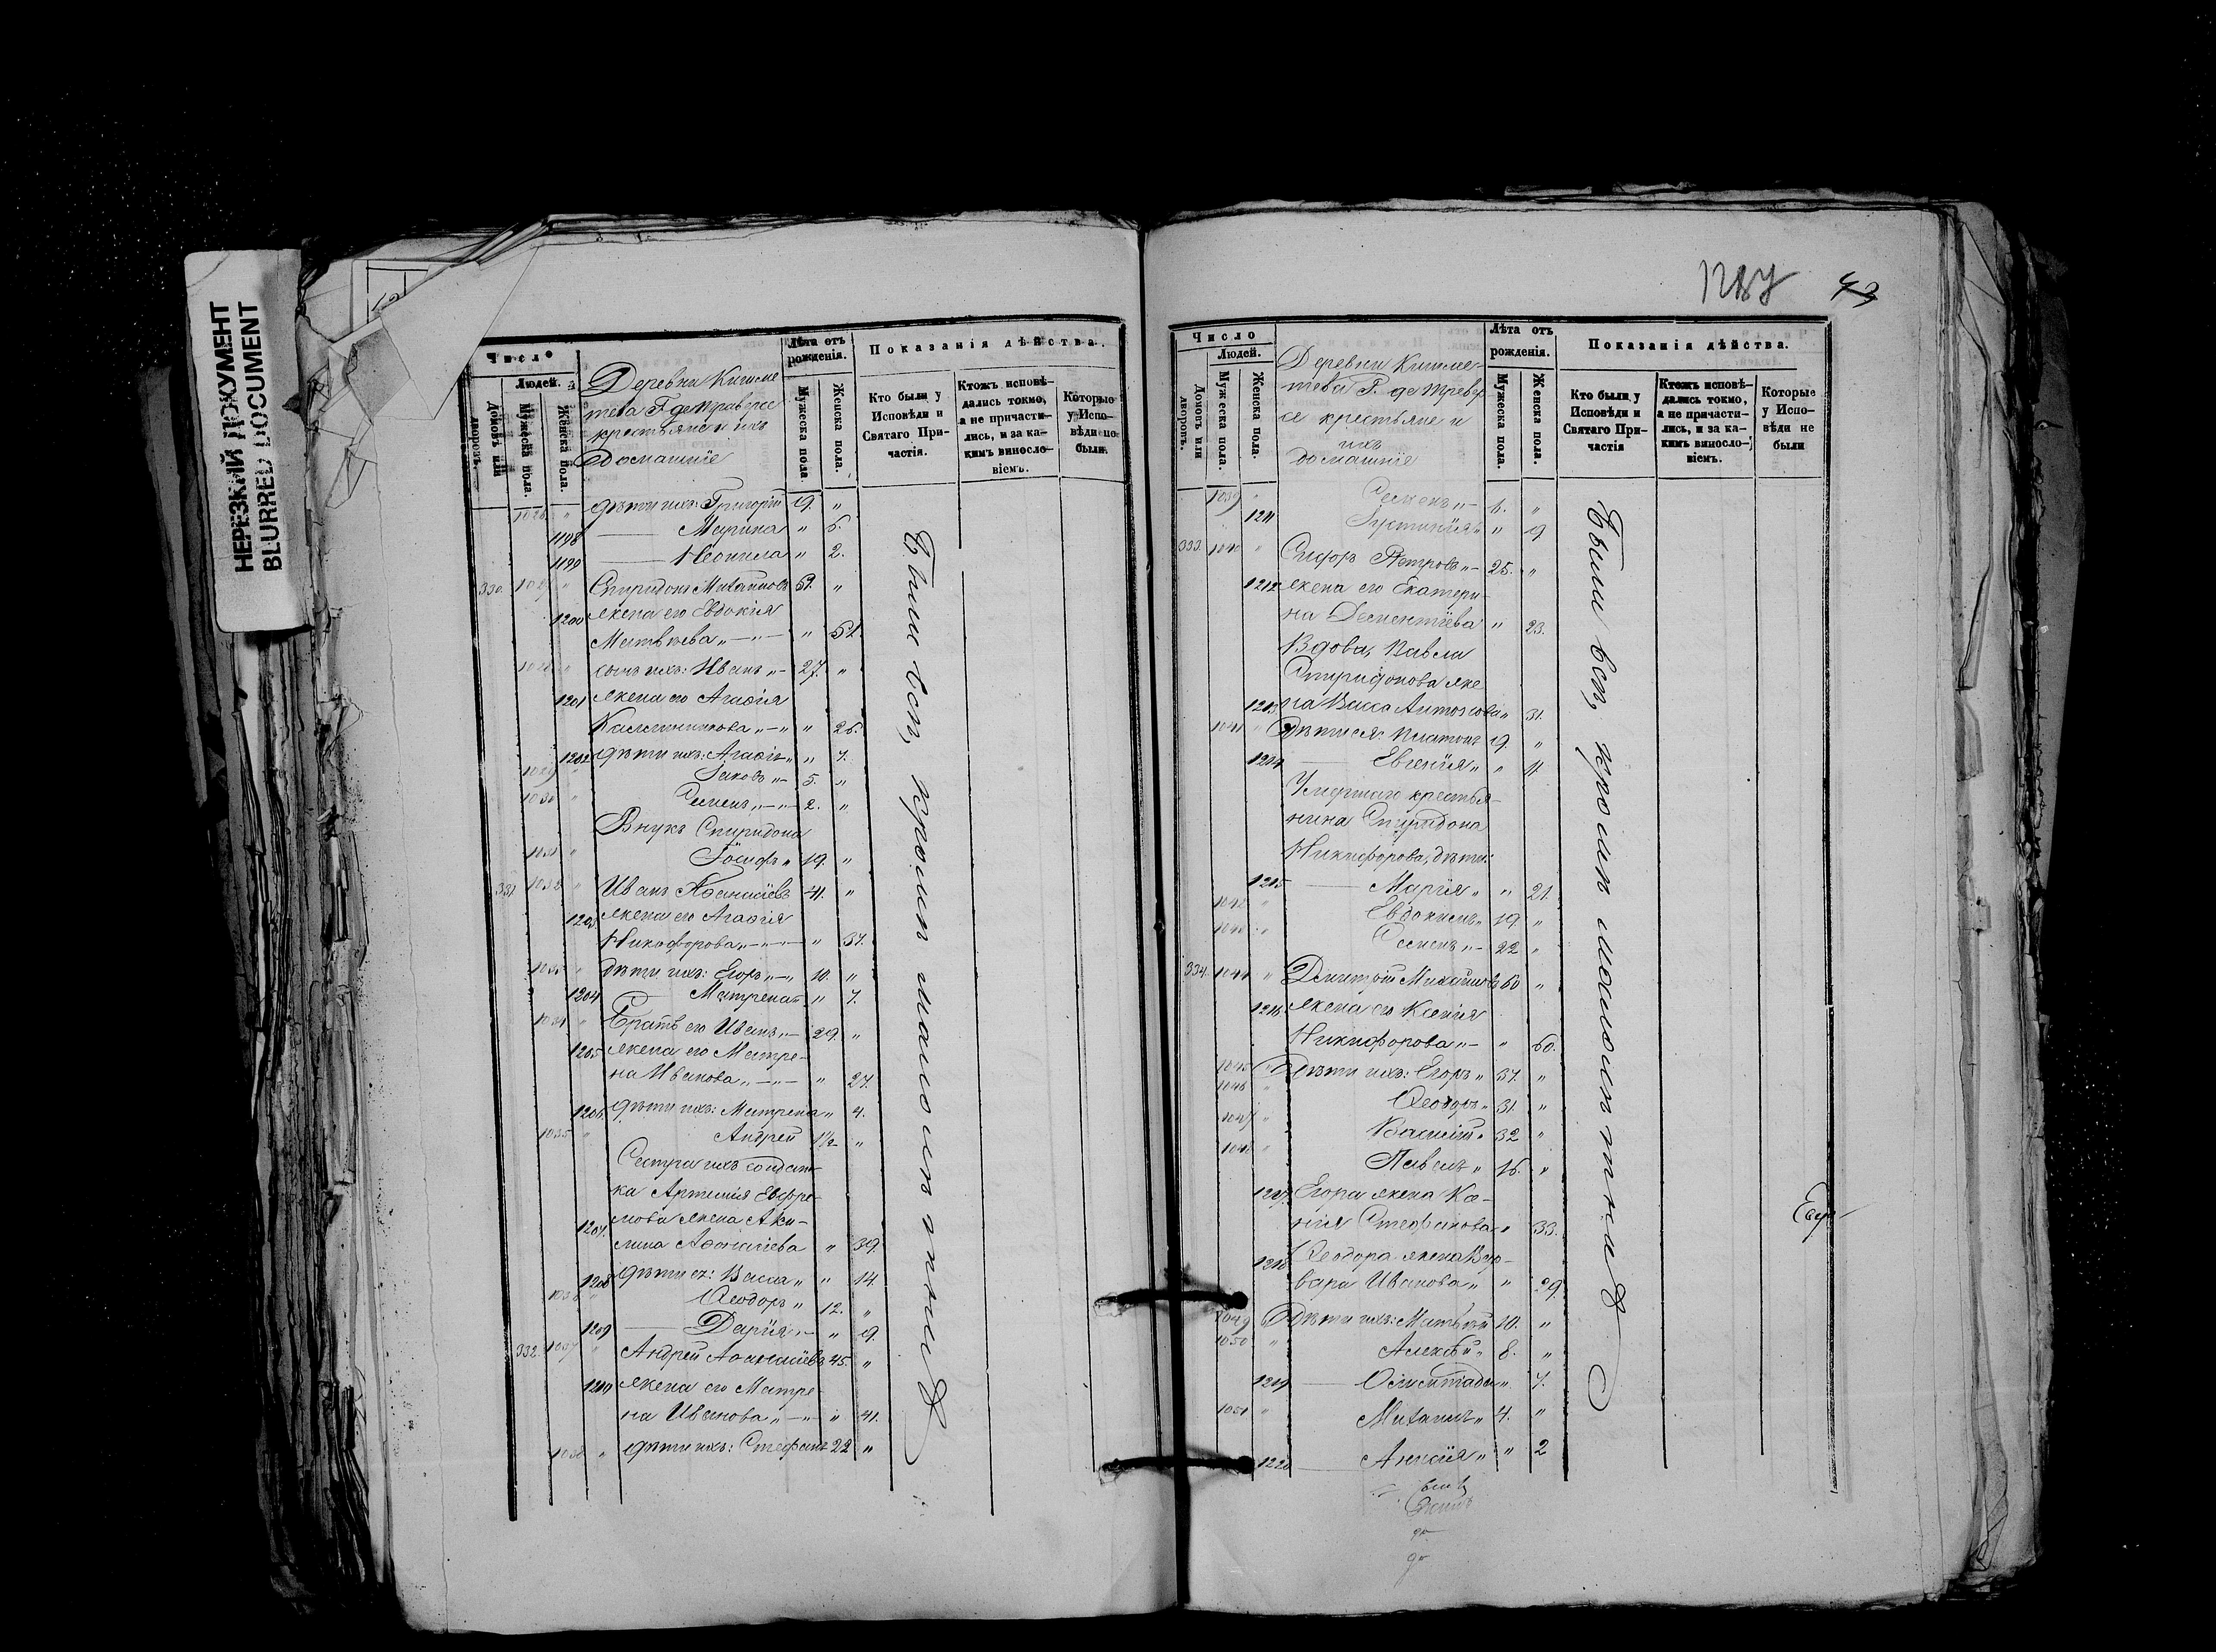 НЕРЕЗКИЙ ДОКУМЕНТ
BLURRED DOCUMENT
Число
Людей.
Домовъ или дворовъ.
Мужеска пола.
Женска пола.
Деревни
крестьяне и ихъ
домашнiе
Лѣта отъ рожденiя.
Мужеска пола
Женска пола.
Показанiя дѣйства.
Кто были у Исповѣди и Святаго Причастiя.
Ктожъ исповѣдались токмо, а не причастились, и за какимъ винословiемъ.
Которые у Исповѣди не были.
1026 " дѣти ихъ: Григорiй 9. "
1198 Марина " 5.
1199 Неонила " 2.
330. 1027 " Спиридонъ Михайловъ "
1200 жена его Евдокiя
Матвѣева "
1028 " сынъ ихъ: Иванъ 27. "
1201 жена его Агафiя
Каллиникова " 26.
1202 дѣти ихъ: Агафiя " 7.
1029 " Iаковъ 5. "
1030 " Семенъ 2. "
Внукъ Спиридона
1031 " Iосифъ 19. "
331. 1032 " Иванъ Афанасiевъ 41. "
1203 жена его Агафiя
Никифорова " 37.
1033 " дѣти ихъ: Егоръ 10. "
1204 Матрена " 7.
1034 " Братъ его Иванъ 29. "
1205 жена его Матре-
на Иванова " 27.
1206 дѣти ихъ: Матрена " 4.
1035 " Андрей 1½ "
Сестра ихъ солдат-
ка Артемiя Ефре-
1207. мова жена Аки-
лина Афанасiева " 39.
1208 дѣти ея: Васса " 14.
1036 " Ѳеодоръ 12. "
1209 Дарiя " 9.
332. 1037 " Андрей Афанасiевъ 45. "
1210 жена его Матре-
на Иванова " 41.
1038 " дѣти ихъ: Стефанъ 22 "
Были всѣ, кромѣ малолѣтныхъ
43
Число
Людей.
Домовъ или дворовъ.
Мужеска пола.
Женска пола.
Деревни
крестьяне и
ихъ
домашнiе
Лѣта отъ рожденiя.
Мужеска пола.
Женска пола.
Показанiя дѣйства.
Кто были у Исповѣди и Святаго Причастiя
Ктожъ исповѣдались токмо, а не причастились, и за какимъ винословiемъ.
Которые у Исповѣди не были
1039 " Семенъ "
1211 Iустинiя " 19
333. 1040 " Сидоръ Петровъ 25. "
1212 жена его Екатери-
на Дементiева " 23.
Вдова, Павла
Спиридонова же-
1213 на Васса Антонова " 31.
1041 " Дѣти ея: Платонъ 9. "
1214 Евгенiя " 11.
Умершаго крестья-
нина Спиридона
Никифорова, дѣти:
1215 Марiя " 21.
1042 " Евдокимъ 19. "
1043 " Семенъ 22 "
334. 1044 " Дмитрiй Михайловъ 60 "
1216 жена его Ксенiя
Никифорова " 60.
1045 " Дѣти ихъ: Егоръ 37. "
1046 " Ѳеодоръ 31. "
1047 " Василiй 32 "
1048 " Павелъ 16. "
1217 Егора жена
Стефанова " 33.
1218 Ѳеодора жена Вар-
вара Иванова " 29.
1049 Дѣти ихъ: Матвѣй 10. "
1050 " Алексѣй 8. "
1219 Олимпiада " 7.
1051 " Михаилъ 4. "
1220 " 2
Были всѣ, кромѣ малолѣтныхъ